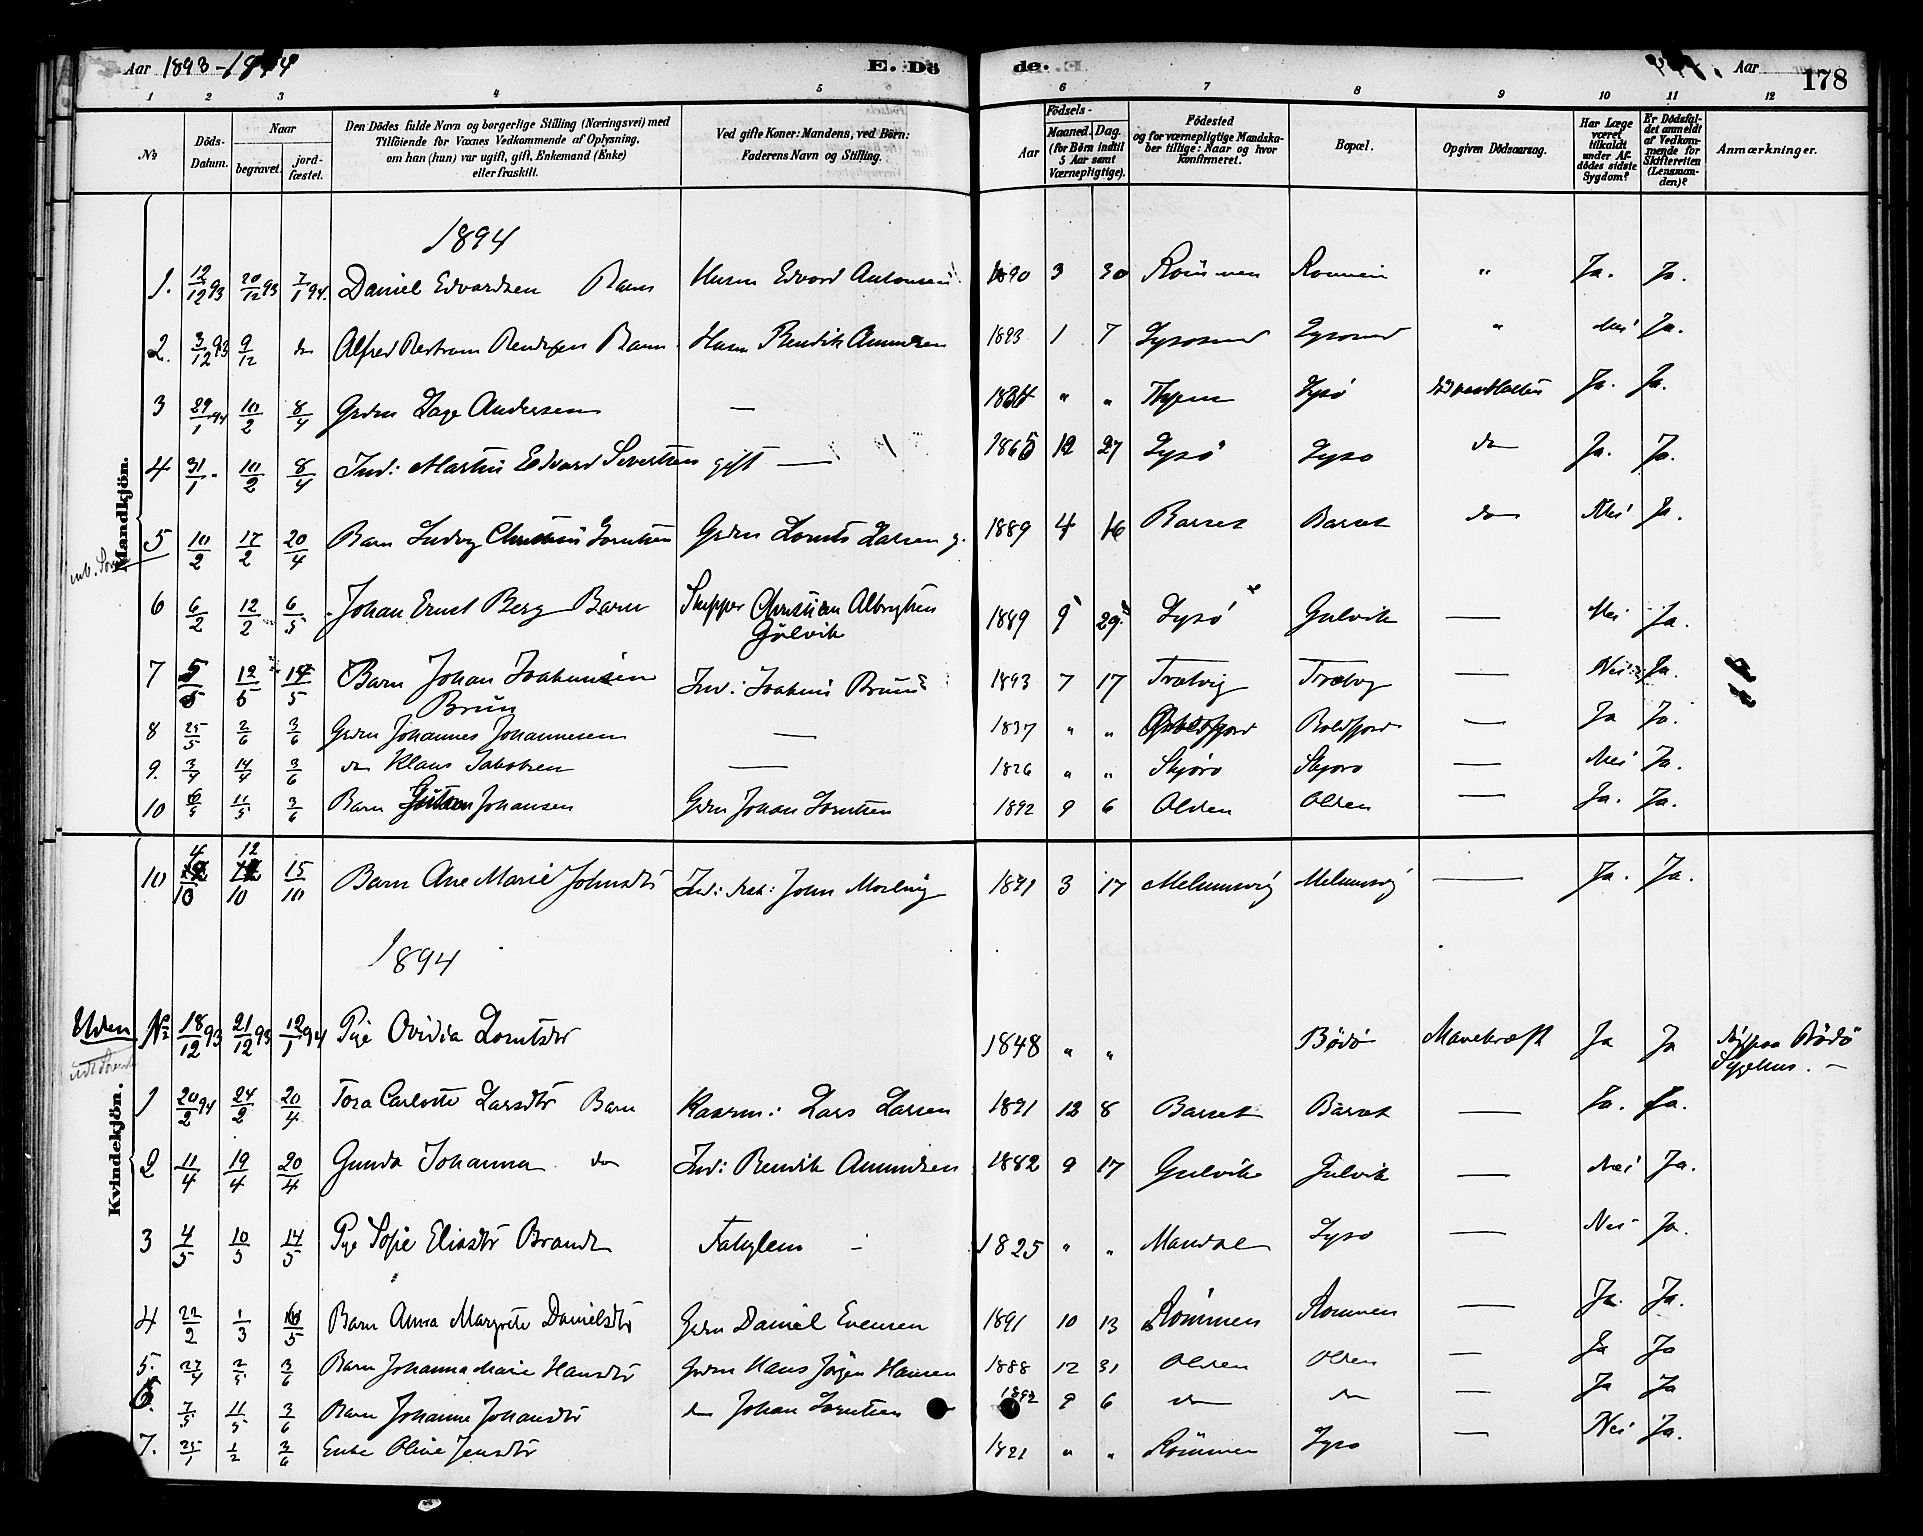 Aar 1893-1894 E. Dö de. Aar 178
1 2 3 4 5 6 7 8 9 10 11 12
No Döds-Datum. Naar begravet. jord-fæstet. Den Dödes fulde Navn og borgerlige Stilling (Næringsvei) med Tilföiende for Voxnes Vedkommende af Oplysning, om han (hun) var ugift, gift, Enkemand (Enke) eller fraskilt. Ved gifte Koner: Mandens, ved Börn: Faderens Navn og Stilling. Födsels- Aar Maaned. Dag. (for Börn indtil 5 Aar samt Værnepligtige). Födested og for værnepligtige Mandskaber tillige: Naar og hvor Konfirmeret. Bopæl. Opgiven Dödsaarsag. Har Læge været tilkaldt under Afdödes sidste Sygdom? Er Dödsfaldet anmeldt af Vedkommende for Skifteretten (Lensmanden)? Anmærkninger.
Mandkjön.
1894
1. 12/12 93 20/12 93 7/1 94. Daniel Edvardsen Barn Husm Edvard Antonsen 1890 3 30 Römmen Rommen " Ja. Ja.
2. 3/12 93 9/12 do Alfred Bertram Barn Husm Bendik Amundsen 1893 1 7 Lysosund Lysosund " Nei Ja.
3 29/1 94 10/2 8/4 Grdm Andersen — " " Lysö Ja. Ja.
4 31/1 10/2 8/4 Ind: Martin Edvard Sivertsen gift — 1865 12 27 Lysö Lyso do Ja. Ja.
5 10/2 17/2 20/4 Barn Ludvig Lorntsen Grdm Lornts Larsen g. 1889 4 16 Barset Barset do Nei Ja.
6 6/2 12/2 6/5 Johan Ernst Berg Barn Skipper Christian Albrigtsen Gulvik 1889 9 29 Lysö Gulvik — Nei Ja.
7 5/5 12/5 14/5 Barn Johan Joakimsen Brun Ind: Joakim Brun 1893 7 17 Tratvig Tratvig — Nei Ja.
8 25/5 2/6 3/6 Grdm Johannes Johannesen — 1837 " " Boldsfjord — Ja Ja.
9. 3/4 14/4 3/6 do Klaus Jakobsen — 1826 " " Skjöro Skjoro — Nei Ja.
10 6/5 11/5 3/6 Barn Johansen Grdm Johan Lorntsen 1892 9 6 Olden Olden — Ja. Ja.
Kvindekjön.
10 4/10 12/10 15/10 Barn Ane Marie Johnsdtr Ind: John 1891 3 17 Melumsvig Melumsvig — Ja. Ja.
1894
Uden No 18/12 93 21/12 93 12/1 94 Pige Ovidia Lorntsdtr 1848 " " Bödö Mavekræft Ja Ja Bödö Sygehus. —
1 20/2 94 24/2 20/4 Tora Carlotte Larsdtr Barn Lars Larsen 1891 12 8 Barset Barset — Ja. Ja.
2 11/4 19/4 20/4 Gunda Johanna do Ind: Bendik Amundsen 1882 9 17 Gulvik Gulvik — Nei Ja.
3 4/5 10/5 14/5 Pige Sofie Eliasdtr Brandt 1825 " " Mandal Lyso — Nei Ja.
4 22/2 1/3 Barn Anna Margrete Danielsdtr Grdm Daniel Evensen 1891 10 13 Römmen Rommen — Ja. Ja.
5. 27/4 2/5 3/6 Barn Johanna Marie Hansdtr Grdm Hans Jörgen Hansen 1888 12 31 Olden Olden — Ja Ja
6. 7/5 11/5 3/6 Barn Johanne Johansdtr do Johan Lorntsen 1892 9 6 do do — Ja Ja
7. 25/1 1/2 3/6 Enke Oline Jensdtr 1821 " " Römmen Lyso — Nei Ja.